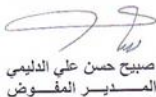 صبيح حسن علي الدليمي
المـــديـر المفـــوض